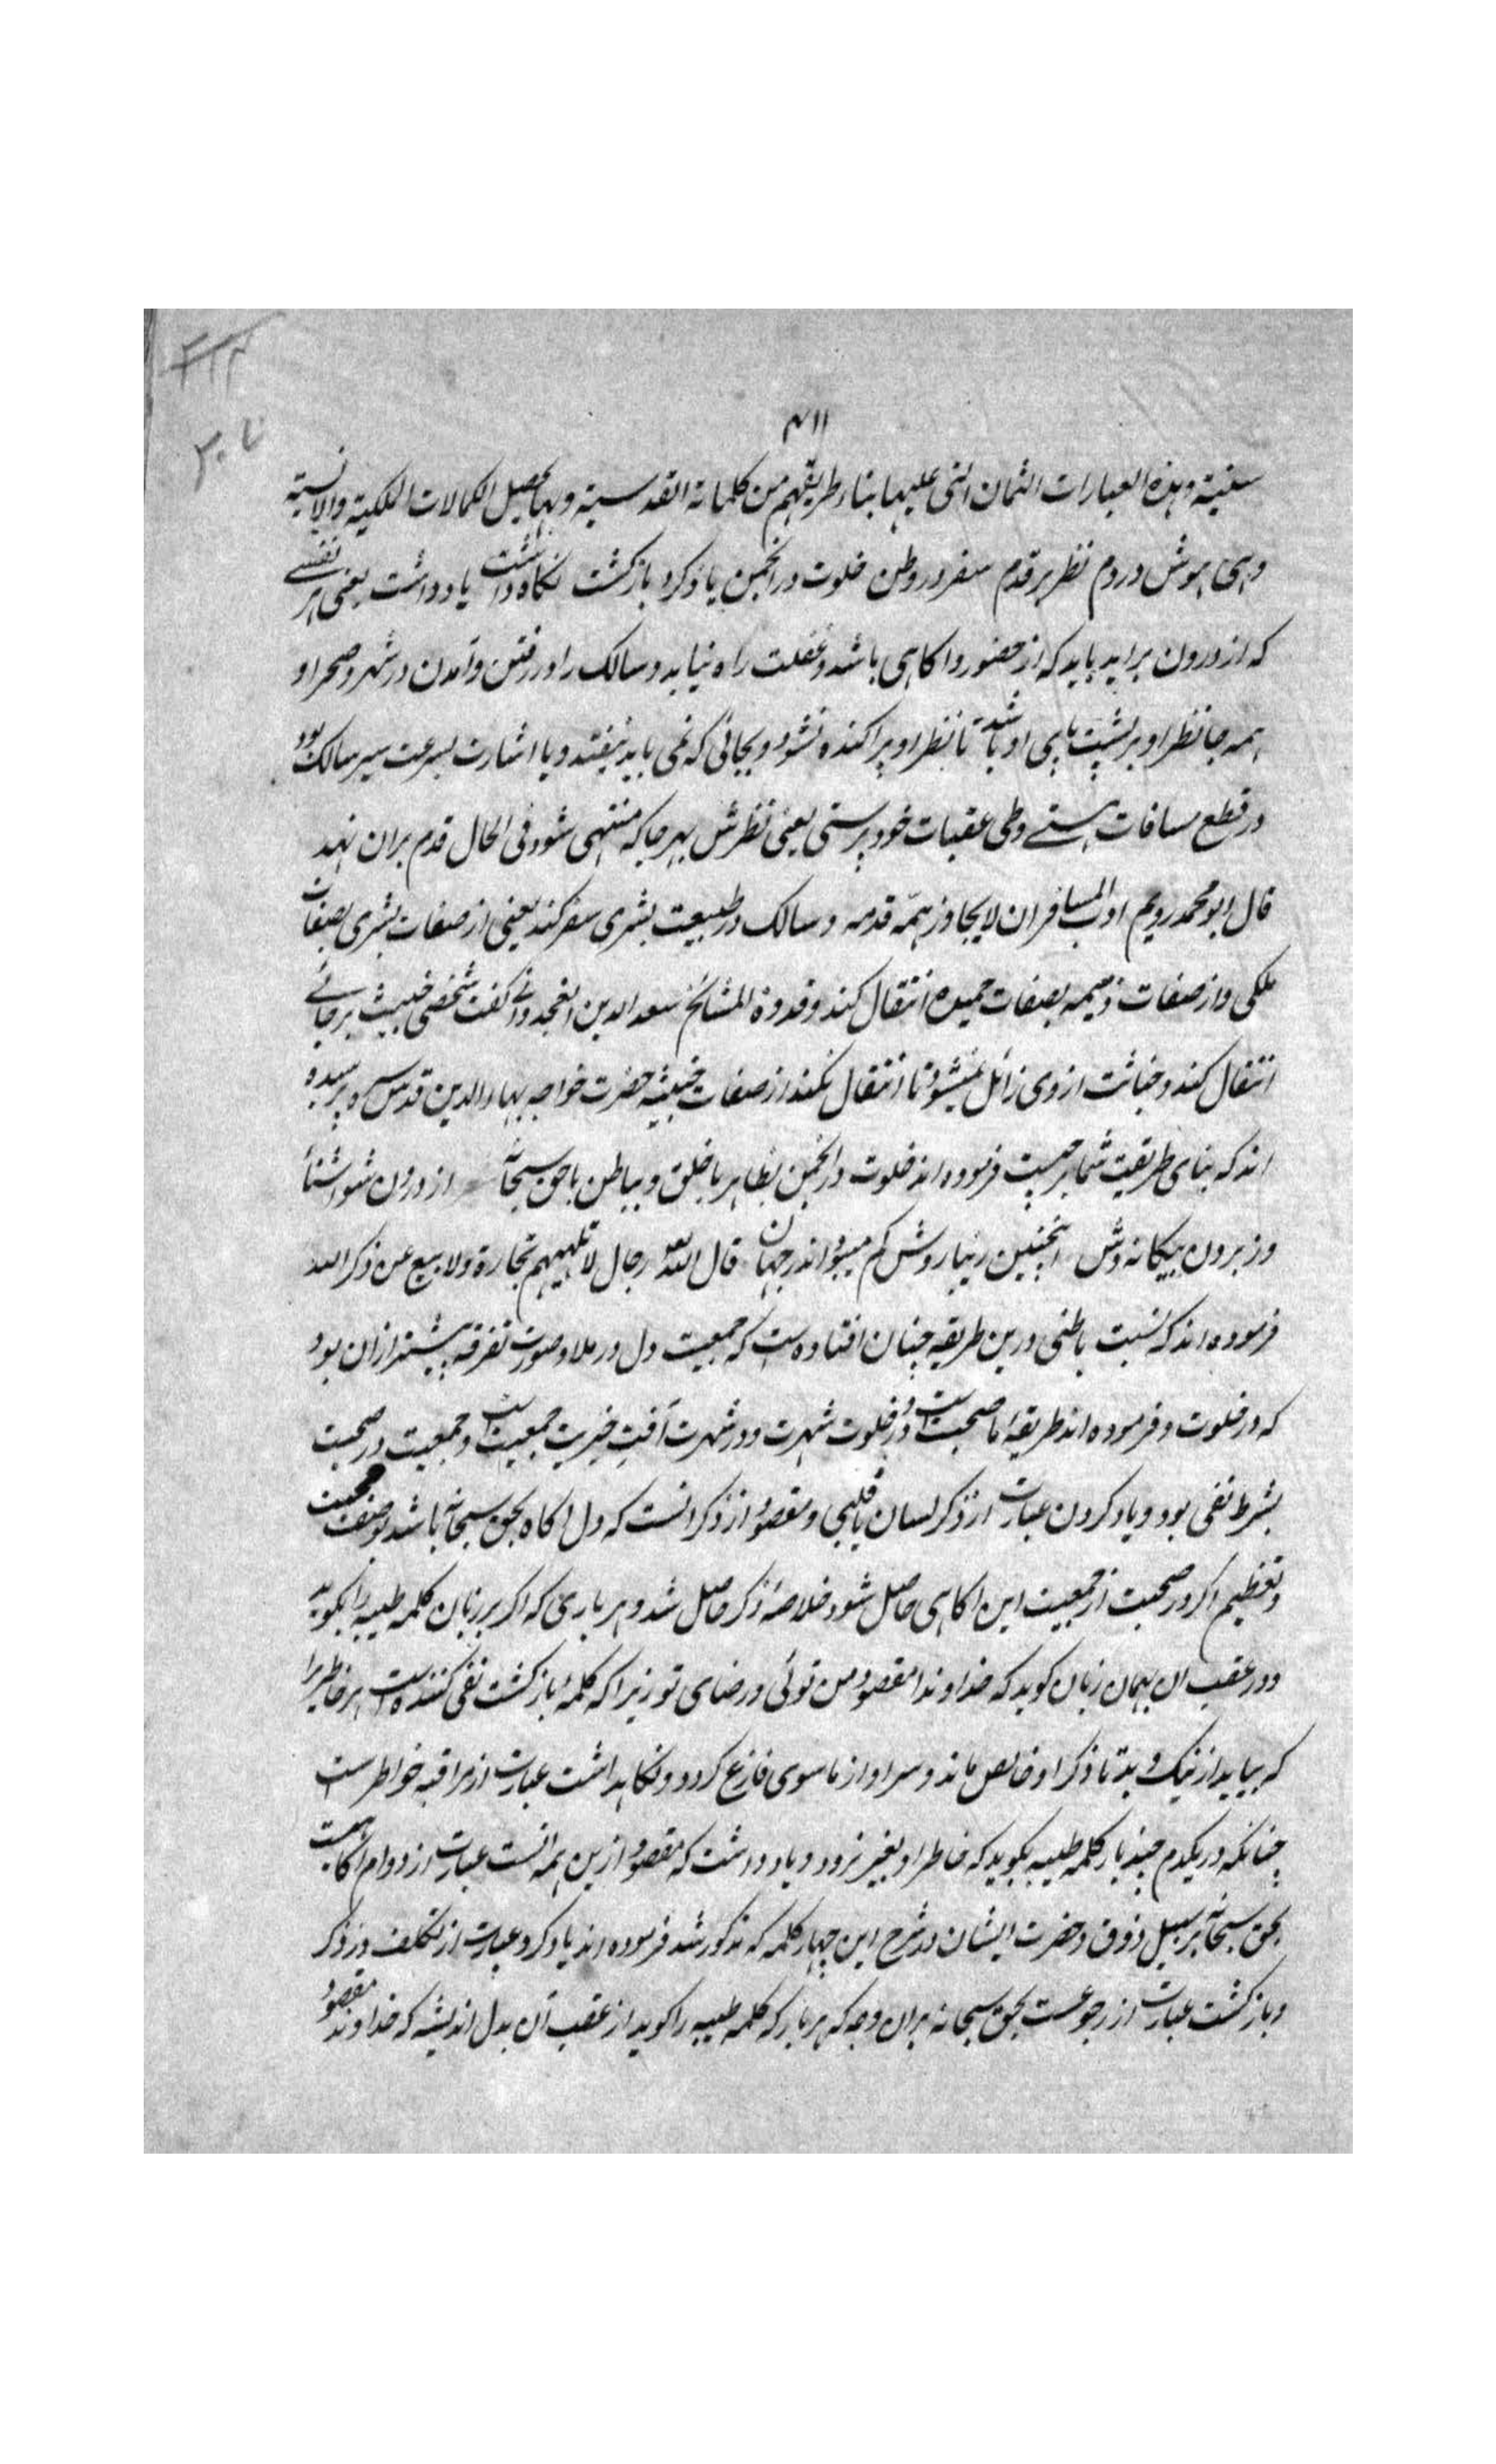 ۳۱۱
سنیة وهذه العبارات الثمان التی علیها بناء طریقهم من کلماته القدسیة وبها یحصل الکمالات الملکیة والانسیة
وهی هوش در دم نظر بر قدم سفر در وطن خلوت در انجمن یاد کرد بازکشت نکاه داشت یاد داشت یعنی هر نفسے
که از درون براید باید که از حضور واکاهی باشد وغفلت راه نیابد وسالک را در رفتن وآمدن در شهر وصحرا و
همه جا نظر او بر پشت پای او باشد تا نظر او پراکنده نشود وبجائی که نمی باید نیفتد ویا اشارت بسرعت سیر سالک بود
در قطع مسافات هستے وطی عقبات خود پرستی یعنی نظرش بهر جا که منتهی شود فی الحال قدم بران نهد
قال ابو محمد رویم ادب المسافر ان لا یجاوز همّه قدمه وسالک در طبیعت بشری سفر کند یعنی از صفات بشری بصفات
ملکی واز صفات ذمیمه بصفات حمیده انتقال کند وقدوة المشائخ سعد الدین الغجدوانے کفت شخصی خبیث بر جائے
انتقال کند وخباثت از وی زائل نمیشود تا انتقال نکند از صفات خبیثه حضرت خواجه بهاء الدین قدس سره پرسیده
اند که بنای طریقت شما بر چیست فرموده اند خلوت در انجمن بظاهر با خلق وبباطن با حق سبحانه از درون شو اشنا
وز برون بیکانه وش اینچنین زیبا روش کم میبود اندر جهان قال الله تعالی رجال لا تلهیهم تجارة ولا بیع عن ذکر الله
فرموده اند که نسبت باطنی درین طریقه چنان افتاده است که جمعیت دل در ملا وصورت تفرقه بیشتر ازان بود
که در خلوت وفرموده اند طریقهٔ ما صحبت است ودر خلوت شهرت ودر شهرت آفت خیریت جمعیت است وجمعیت در صحبت
بشرط نفی بود ویاد کردن عبارت از ذکر لسان یا قلبی ومقصود از ذکر انست که دل اکاه بحق سبحانه باشد بوصف محبت
وتعظیم اکر در صحبت از جمعیت این اکاهی حاصل شود خلاصهٔ ذکر حاصل شد وهر باری که اکر بر زبان کلمه طیبه را بکوید
ودر عقب ان بهمان زبان کوید که خداوندا مقصود من توئی ورضای تو زیرا که کلمهٔ بازکشت نفی کننده است هر خاطر را
که بیاید از نیک وبد تا ذکر او خالص ماند وسر او از ماسوی فارغ کردد ونکاهداشت عبارت از مراقبه خواطر است
چنانکه در یکدم چند بار کلمه طیبه بکوید که خاطر او بغیر نرود ویاد داشت که مقصود ازین همه انست عبارت از دوام اکاهیست
بحق سبحانه بر سبیل ذوق وحضرت ایشان در شرح این چهار کلمه که مذکور شد فرموده اند یاد کرد عبارت از تکلف در ذکر
وبازکشت عبارت از رجوعست بحق سبحانه بران وجه که هر بار که کلمه طیبه را کوید از عقب آن بدل اندیشه که خداوندا مقصود